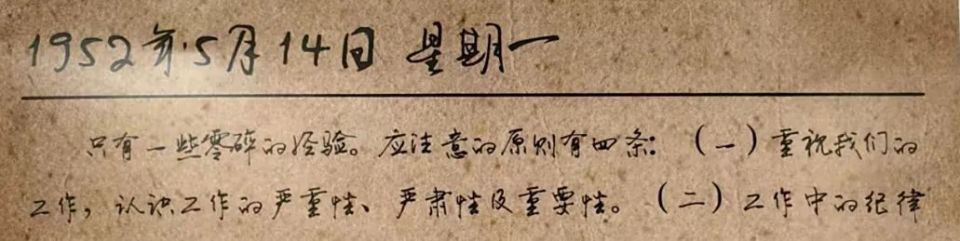 1952年.5月14日 星期一
只有一些零碎的经验。应注意的原则有四条:(一)重视我们的
工作,认识工作的严重性、严肃性及重要性。(二)工作中的纪律